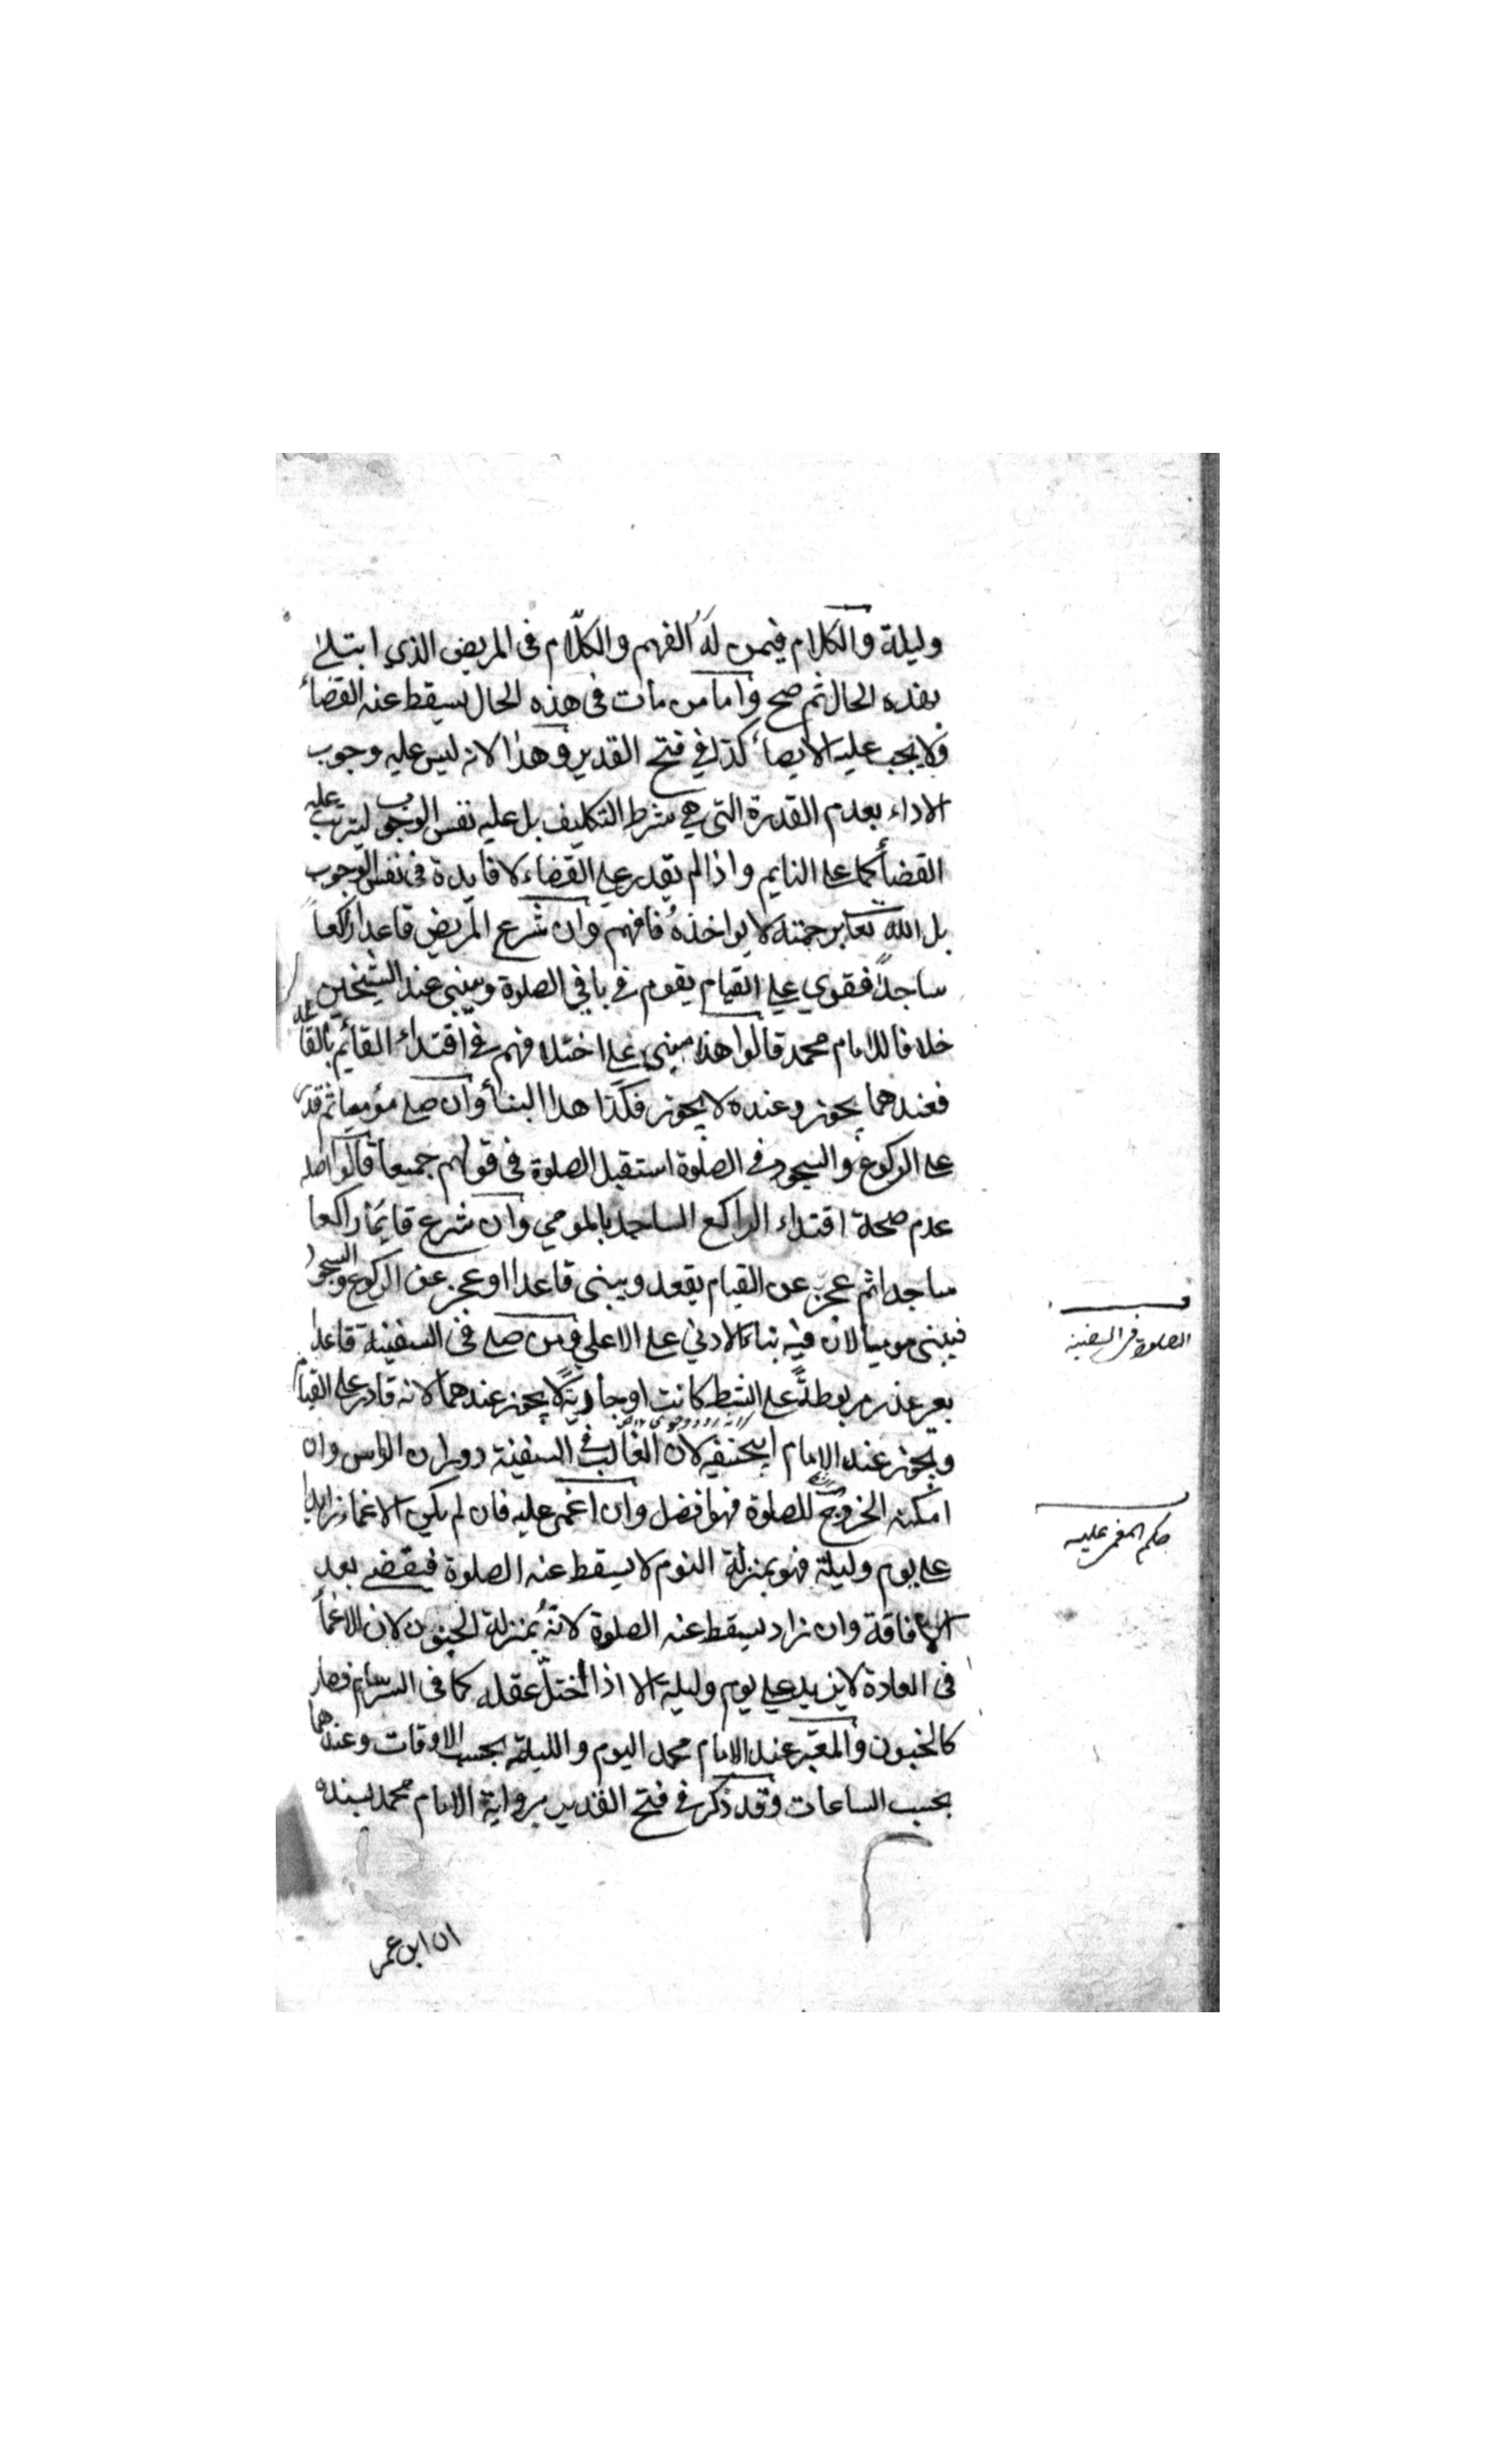 وليلة والكلام فيمن له الفهم والكلام فى المريض الذي ابتلى
بهذه الحال ثم صح واما من مات فى هذه الحال يسقط عنه القضاء
ولا يجب عليه الايصاء كذا في فتح القدير وهذا لانه ليس عليه وجوب
الاداء بعدم القدرة التى هي شرط التكليف بل عليه نفس الوجوب ليترتب عليه
القضاء كما على النايم واذا لم يقدر على القضاء لا فايدة فى نفس الوجوب
بل الله تعا برحمته لا يواخذه فافهم وان شرع المريض قاعدا راكعا
ساجدا فقوي على القيام يقوم في باقي الصلوة ويبنى عند الشيخين
خلافا للامام محمد قالوا هذا مبنى على اختلافهم في اقتداء القائم بالقاعد
فعندهما يجوز وعنده لا يجوز فكذا هذا البناء وان صلى مؤميا ثم قدر
على الركوع والسجود في الصلوة استقبل الصلوة فى قولهم جميعا قالوا اصله
عدم صحة اقتداء الراكع الساجد بالمومي وان شرع قايما راكعا
ساجدا ثم عجز عن القيام يقعد ويبنى قاعدا او عجز عن الركوع والسجود
فيبنى موميا لان فيه بناء الادني على الاعلي ومن صلى فى السفينة قاعدا
بغير عذر مربوطة على الشط كانت او جارية لا يجوز عندهما لانه قادر على القيام
ويجوز عند الامام ابيحنيفه لان الغالب في السفينة دوران الراس وان
امكنه الخروج للصلوة فهو افضل وان اغمى عليه فان لم يكن الاغماء زايدا
على يوم وليلة فهو بمنزلة النوم لا يسقط عنه الصلوة فيقضى بعد
الافاقة وان زاد يسقط عنه الصلوة لانه بمنزلة الجنون لان الاغماء
فى العادة لا يزيد على يوم وليلة الا اذا اختل عقله كما فى السرسام فصار
كالجنون والمعتبر عند الامام محمد اليوم والليلة بحسب الاوقات وعندهما
بحسب الساعات وقد ذكر في فتح القدير برواية الامام محمد بسنده
ان ابن عمر
الصلوة فى السفينة
حكم المغمى عليه